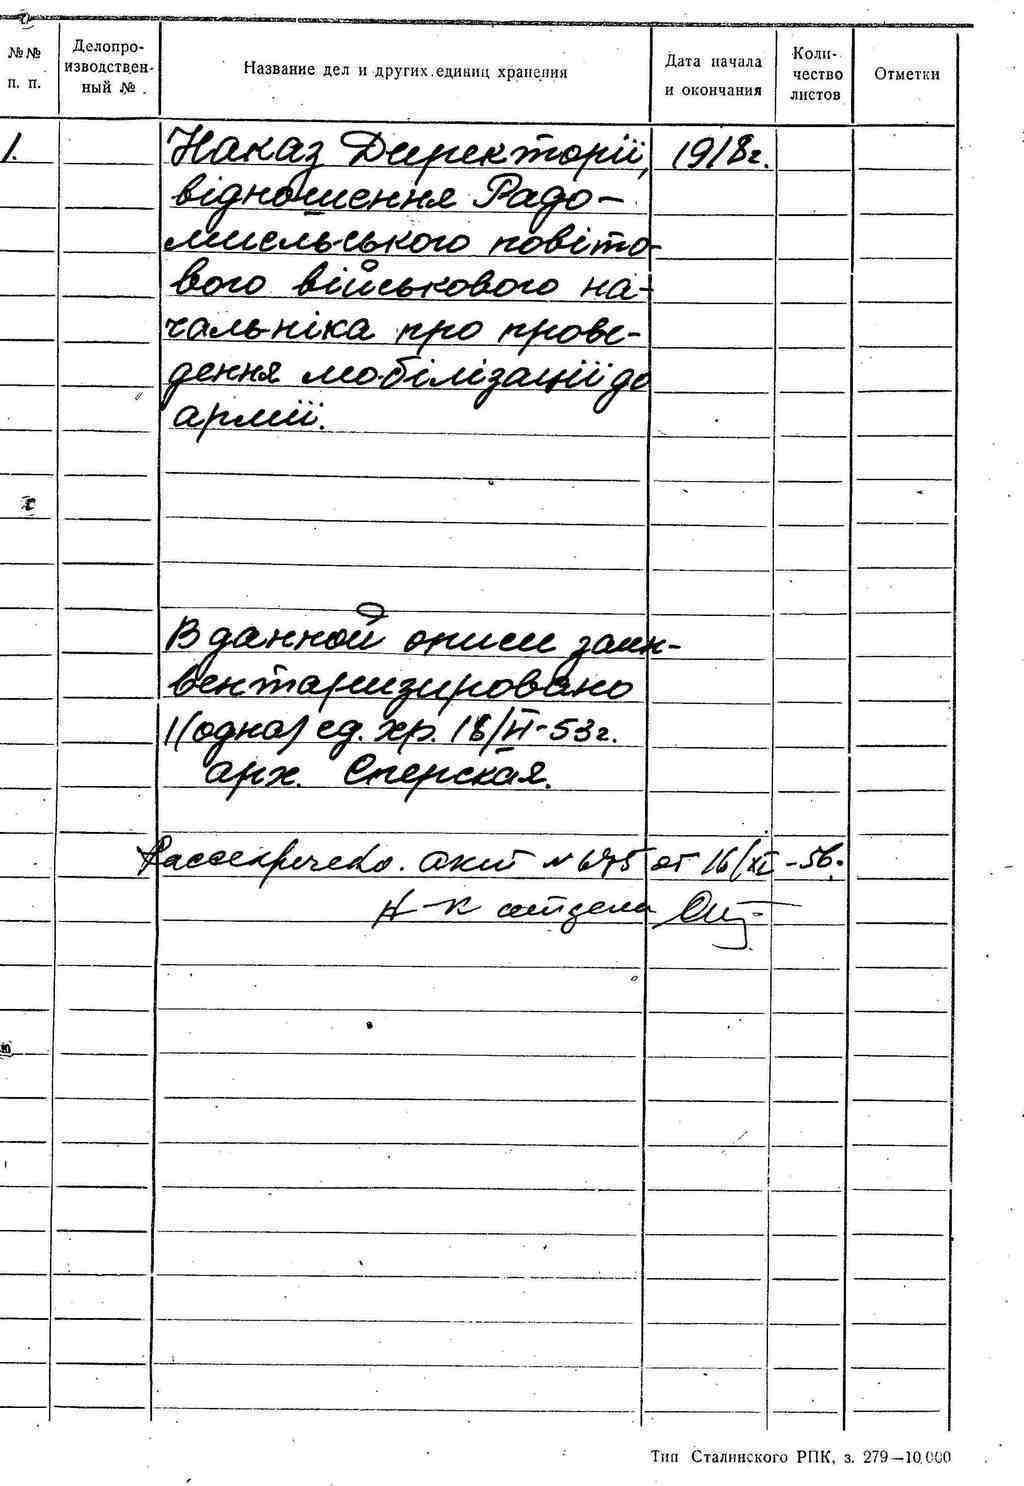 №№ п. п.
Делопро-
изводствен-
ный №
Название дел и других единиц хранения
Дата начала
и окончания
Коли-
чество
листов
Отметки
1. Наказ Директорії, 1918г.
відношення Радо-
мисльського повіто-
вого військового на-
чальніка про прове-
дення мобілізації до
армії.
В данной описи заин-
вентаризировано
1(одна) ед. хр. 18/II-53г.
арх. Сперская.
Рассекречено. акт № 675 от 16/XI-56.
Н-к отдела
Тип Сталинского РПК, з. 279—10.000